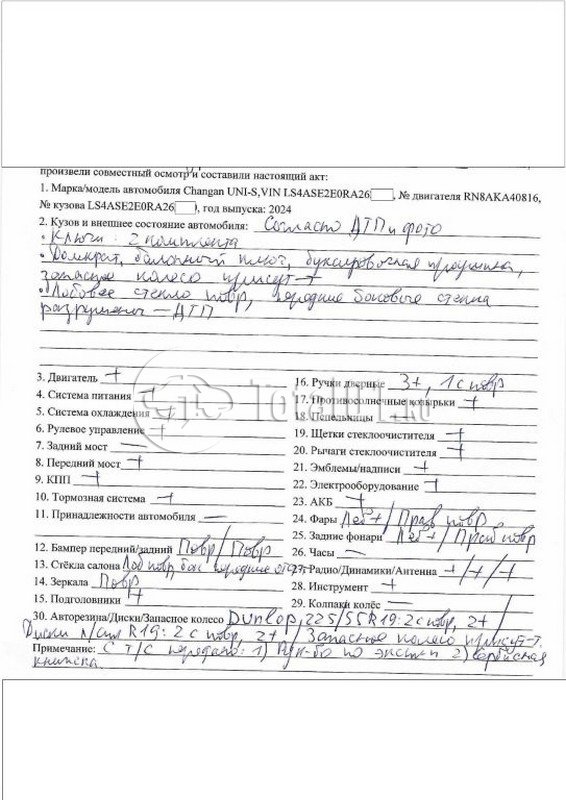 произвели совместный осмотр и составили настоящий акт:
1. Марка/модель автомобиля Changan UNI-S, VIN LS4ASE2E0RA26, № двигателя RN8AKA40816,
№ кузова LS4ASE2E0RA26), год выпуска: 2024
2. Кузов и внешнее состояние автомобиля: Согласно ДТП и фото
• Ключи: 2 комплекта
• Домкрат, балонный ключ, буксировочная проушина,
запасное колесо присут-т
• Лобовое стекло повр, передние боковые стекла
разрушены — ДТП
3. Двигатель +
4. Система питания +
5. Система охлаждения +
6. Рулевое управление +
7. Задний мост —
8. Передний мост +
9. КПП +
10. Тормозная система +
11. Принадлежности автомобиля —
12. Бампер передний/задний Повр/Повр
13. Стёкла салона Лоб повр, бок передние
14. Зеркала Повр
15. Подголовники +
16. Ручки дверные 3+, 1 с повр
17. Противосолнечные козырьки +
18. Пепельницы —
19. Щетки стеклоочистителя +
20. Рычаги стеклоочистителя +
21. Эмблемы/надписи +
22. Электрооборудование +
23. АКБ +
24. Фары Лев+/Прав повр
25. Задние фонари Лев+/Прав повр
26. Часы —
27. Радио/Динамики/Антенна +/+/+
28. Инструмент +
29. Колпаки колёс —
30. Авторезина/Диски/Запасное колесо Dunlop, 225/55R19: 2 с повр, 2+/
Диски R19: 2 с повр, 2+ / Запасное колесо присут-т.
Примечание: С Т/С передано: 1) Рук-во по экспл 2) Сервисная
книжка.